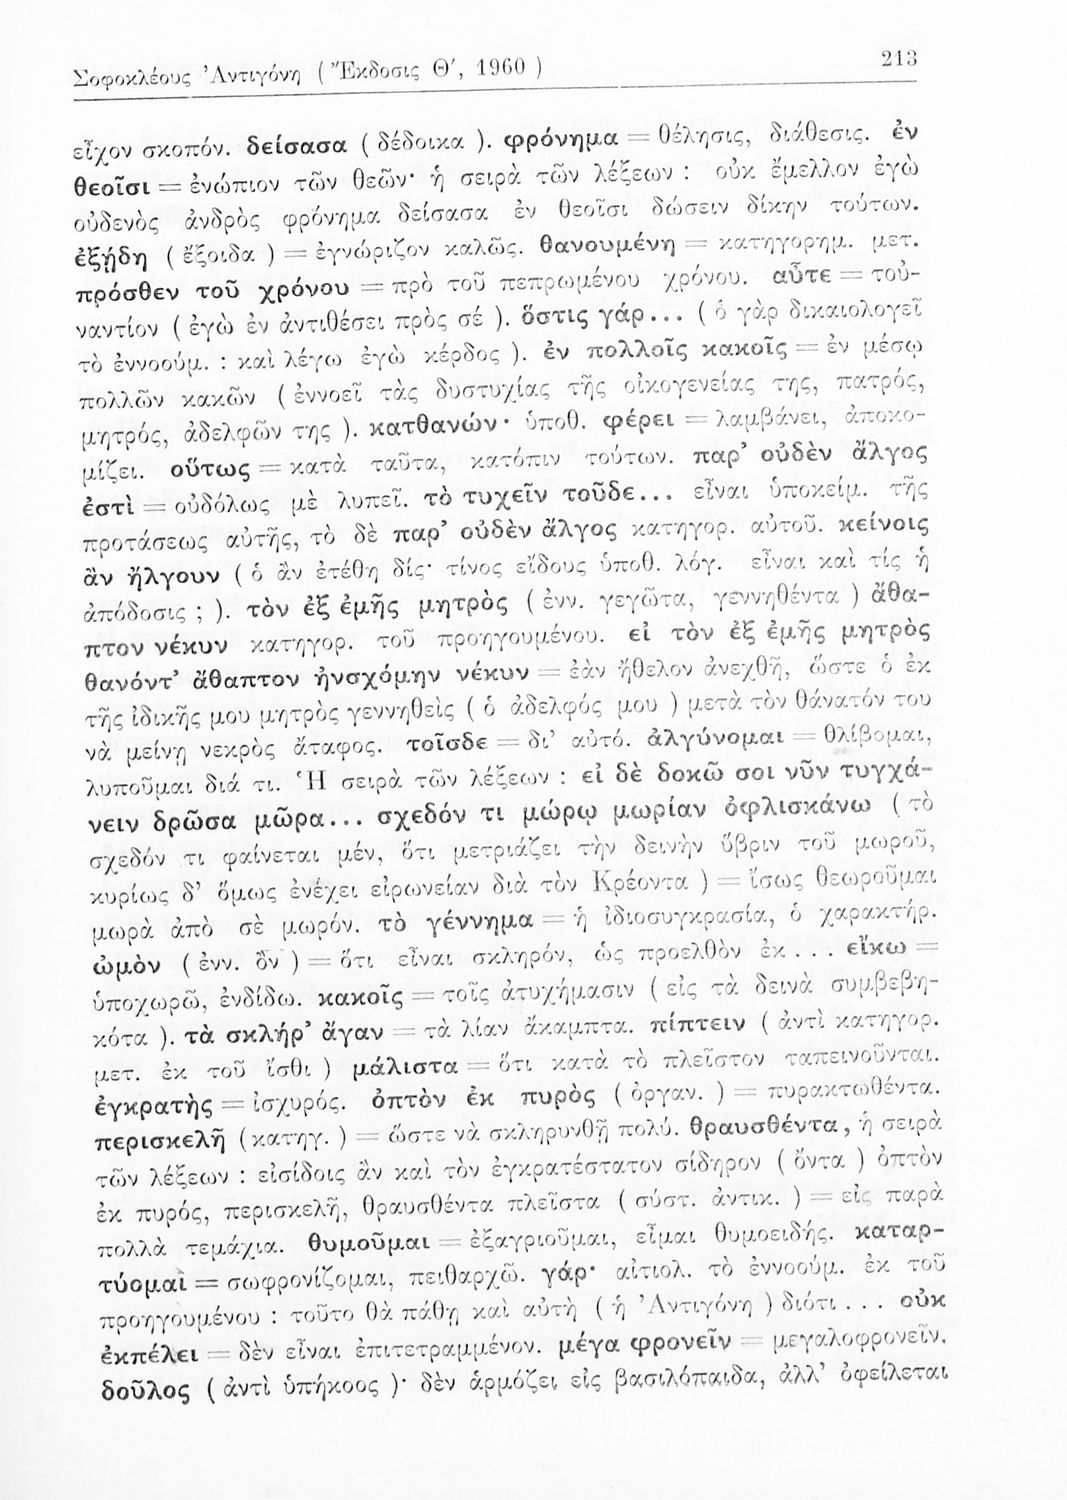 Σοφοκλέους Ἀντιγόνη ( Ἔκδοσις Θ', 1960 ) 213
εἶχον σκοπόν. δείσασα ( δέδοικα ). φρόνημα = θέλησις, διάθεσις. ἐν
θεοῖσι = ἐνώπιον τῶν θεῶν· ἡ σειρὰ τῶν λέξεων : οὐκ ἔμελλον ἐγὼ
οὐδενὸς ἀνδρὸς φρόνημα δείσασα ἐν θεοῖσι δώσειν δίκην τούτων.
ἐξῄδη ( ἔξοιδα ) = ἐγνώριζον καλῶς. θανουμένη = κατηγορημ. μετ.
πρόσθεν τοῦ χρόνου = πρὸ τοῦ πεπρωμένου χρόνου. αὖτε = τοὐ-
ναντίον ( ἐγὼ ἐν ἀντιθέσει πρὸς σέ ). ὅστις γάρ... ( ὁ γὰρ δικαιολογεῖ
τὸ ἐννοούμ. : καὶ λέγω ἐγὼ κέρδος ). ἐν πολλοῖς κακοῖς = ἐν μέσῳ
πολλῶν κακῶν ( ἐννοεῖ τὰς δυστυχίας τῆς οἰκογενείας της, πατρός,
μητρός, ἀδελφῶν της ). κατθανών· ὑποθ. φέρει = λαμβάνει, ἀποκο-
μίζει. οὕτως = κατὰ ταῦτα, κατόπιν τούτων. παρ' οὐδὲν ἄλγος
ἐστὶ = οὐδόλως μὲ λυπεῖ. τὸ τυχεῖν τοῦδε... εἶναι ὑποκείμ. τῆς
προτάσεως αὐτῆς, τὸ δὲ παρ' οὐδὲν ἄλγος κατηγορ. αὐτοῦ. κείνοις
ἂν ἤλγουν ( ὁ ἂν ἐτέθη δίς· τίνος εἴδους ὑποθ. λόγ. εἶναι καὶ τίς ἡ
ἀπόδοσις ; ). τὸν ἐξ ἐμῆς μητρὸς ( ἐνν. γεγῶτα, γεννηθέντα ) ἄθα-
πτον νέκυν κατηγορ. τοῦ προηγουμένου. εἰ τὸν ἐξ ἐμῆς μητρὸς
θανόντ' ἄθαπτον ἠνσχόμην νέκυν = ἐὰν ἤθελον ἀνεχθῆ, ὥστε ὁ ἐκ
τῆς ἰδικῆς μου μητρὸς γεννηθεὶς ( ὁ ἀδελφός μου ) μετὰ τὸν θάνατόν του
νὰ μείνῃ νεκρὸς ἄταφος. τοῖσδε = δι' αὐτό. ἀλγύνομαι = θλίβομαι,
λυποῦμαι διά τι. Ἡ σειρὰ τῶν λέξεων : εἰ δὲ δοκῶ σοι νῦν τυγχά-
νειν δρῶσα μῶρα... σχεδόν τι μώρῳ μωρίαν ὀφλισκάνω ( τὸ
σχεδόν τι φαίνεται μέν, ὅτι μετριάζει τὴν δεινὴν ὕβριν τοῦ μωροῦ,
κυρίως δ' ὅμως ἐνέχει εἰρωνείαν διὰ τὸν Κρέοντα ) = ἴσως θεωροῦμαι
μωρὰ ἀπὸ σὲ μωρόν. τὸ γέννημα = ἡ ἰδιοσυγκρασία, ὁ χαρακτήρ.
ὠμὸν ( ἐνν. ὂν ) = ὅτι εἶναι σκληρόν, ὡς προελθὸν ἐκ . . . εἴκω =
ὑποχωρῶ, ἐνδίδω. κακοῖς = τοῖς ἀτυχήμασιν ( εἰς τὰ δεινὰ συμβεβη-
κότα ). τὰ σκλήρ' ἄγαν = τὰ λίαν ἄκαμπτα. πίπτειν ( ἀντὶ κατηγορ.
μετ. ἐκ τοῦ ἴσθι ) μάλιστα = ὅτι κατὰ τὸ πλεῖστον ταπεινοῦνται.
ἐγκρατὴς = ἰσχυρός. ὀπτὸν ἐκ πυρὸς ( ὀργαν. ) = πυρακτωθέντα.
περισκελῆ ( κατηγ. ) = ὥστε νὰ σκληρυνθῇ πολύ. θραυσθέντα, ἡ σειρὰ
τῶν λέξεων : εἰσίδοις ἂν καὶ τὸν ἐγκρατέστατον σίδηρον ( ὄντα ) ὀπτὸν
ἐκ πυρός, περισκελῆ, θραυσθέντα πλεῖστα ( σύστ. ἀντικ. ) = εἰς παρὰ
πολλὰ τεμάχια. θυμοῦμαι = ἐξαγριοῦμαι, εἶμαι θυμοειδής. καταρ-
τύομαι = σωφρονίζομαι, πειθαρχῶ. γάρ· αἰτιολ. τὸ ἐννοούμ. ἐκ τοῦ
προηγουμένου : τοῦτο θὰ πάθῃ καὶ αὐτὴ ( ἡ Ἀντιγόνη ) διότι . . . οὐκ
ἐκπέλει = δὲν εἶναι ἐπιτετραμμένον. μέγα φρονεῖν = μεγαλοφρονεῖν.
δοῦλος ( ἀντὶ ὑπήκοος )· δὲν ἁρμόζει εἰς βασιλόπαιδα, ἀλλ' ὀφείλεται